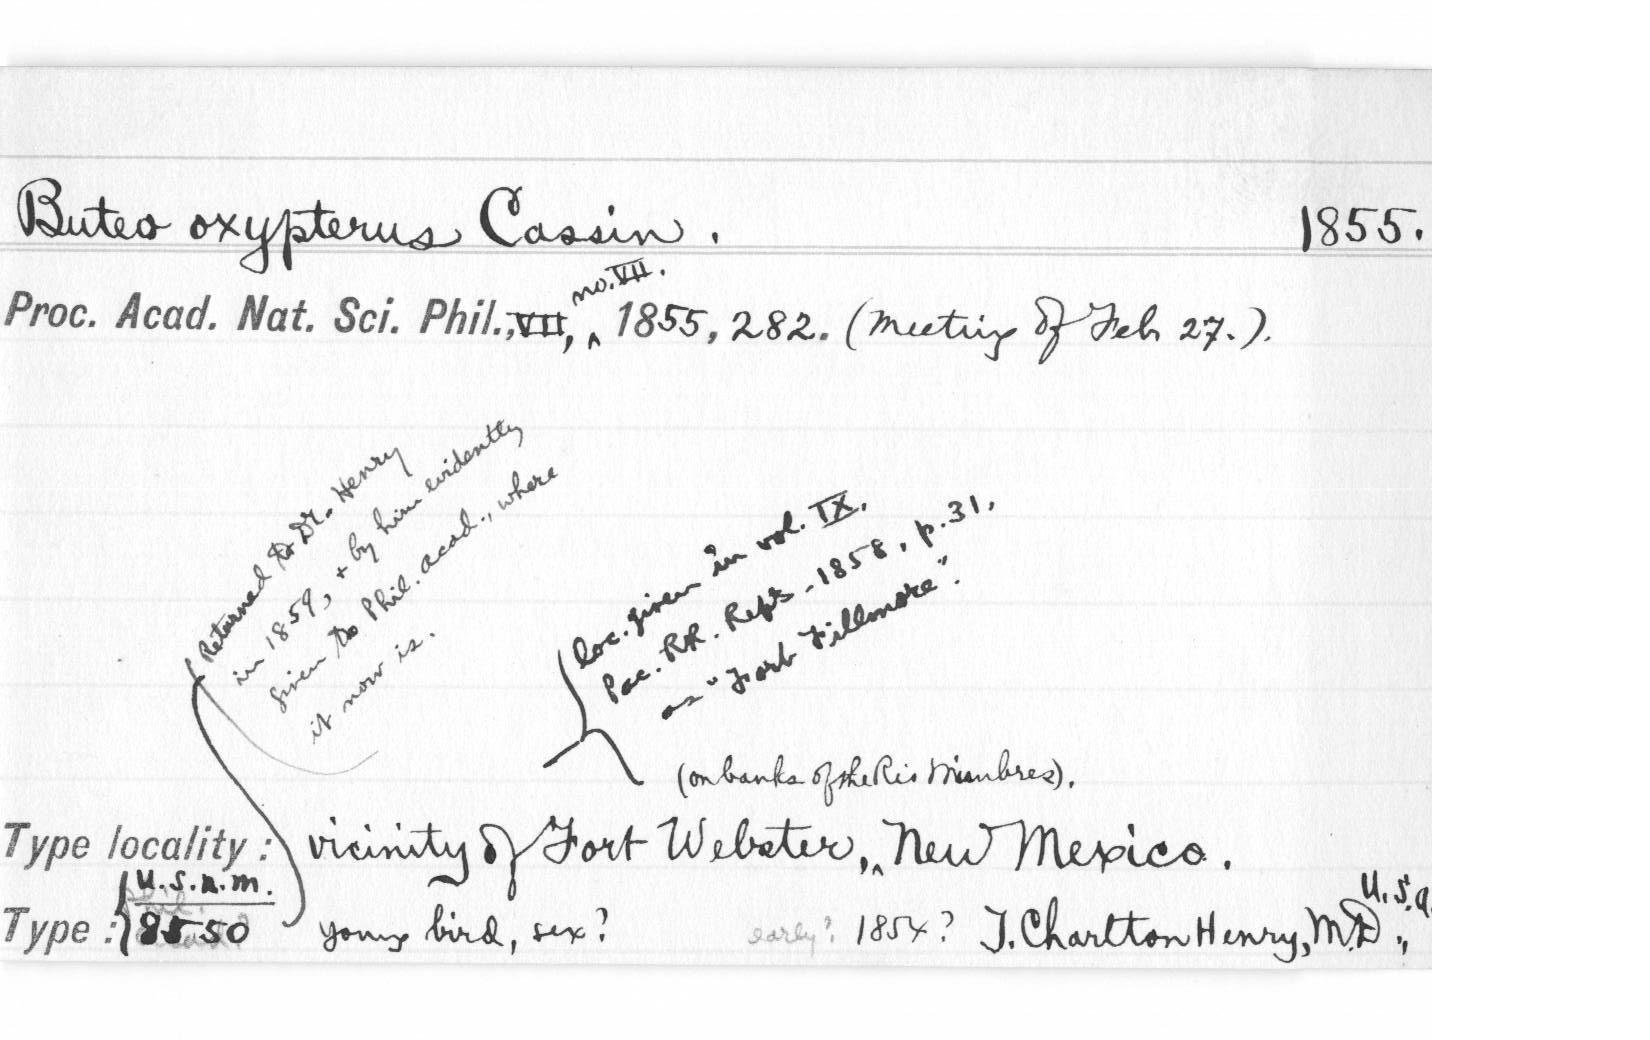 Buteo oxypterus Cassin. 1855.
no. VII.
Proc. Acad. Nat. Sci. Phil., VII, ^ 1855, 282. (Meeting of Feb 27.).
Returned to Dr. Henry
in 1859, + by him evidently
given to Phil. Acad., where
it now is.
loc. given in vol. IX,
Pac. RR. Repts - 1858, p. 31,
as "Fort Fillmore".
(on banks of the Rio Mimbres).
Type locality: vicinity of Fort Webster, ^ New Mexico.
U.S.N.M.
Type: 8550 young bird, sex? early? 1854? T. Charlton Henry, M.D., U.S.A.